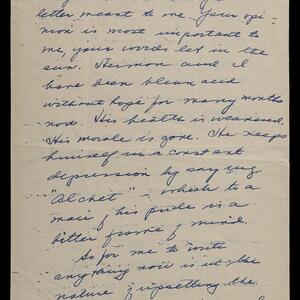 letter meant to me. Your opi-
nion is most important to
me, your words let in the
sun. Herman and I
have been bleak and
without hope for many months
now. His health is weakened.
His morale is gone. He keeps
himself in a constant
depression by saying
"
which to a
man of his pride is a
bitter frame of mind.
So for me to write
anything now is in the
nature of upsetting the